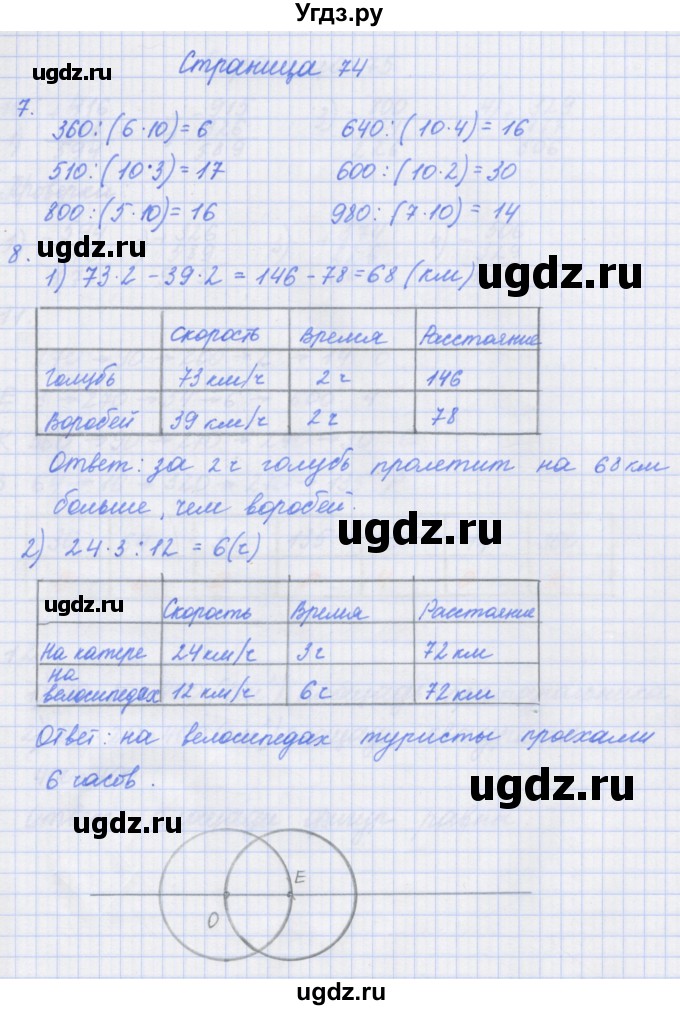 Угдз.ру
ugdz.ru Страница 74
7.
360:(6·10)=6 640:(10·4)=16
510:(10·3)=17 600:(10·2)=30
800:(5·10)=16 980:(7·10)=14
8. ugdz.ru
1) 73·2-39·2=146-78=68(км) ugdz.ru
Скорость Время Расстояние
Голубь 73 км/ч 2 ч 146
Воробей 39 км/ч 2 ч 78
Ответ: за 2 ч голубь пролетит на 68 км
больше, чем воробей.
ugdz.ru
2) 24·3:12=6(ч)
ugdz.ru Скорость Время Расстояние
На катере 24 км/ч 3 ч 72 км
на велосипедах 12 км/ч 6 ч 72 км
Ответ: на велосипедах туристы проехали
6 часов.
ugdz.ru
ugdz.ru
E
O
ugdz.ru